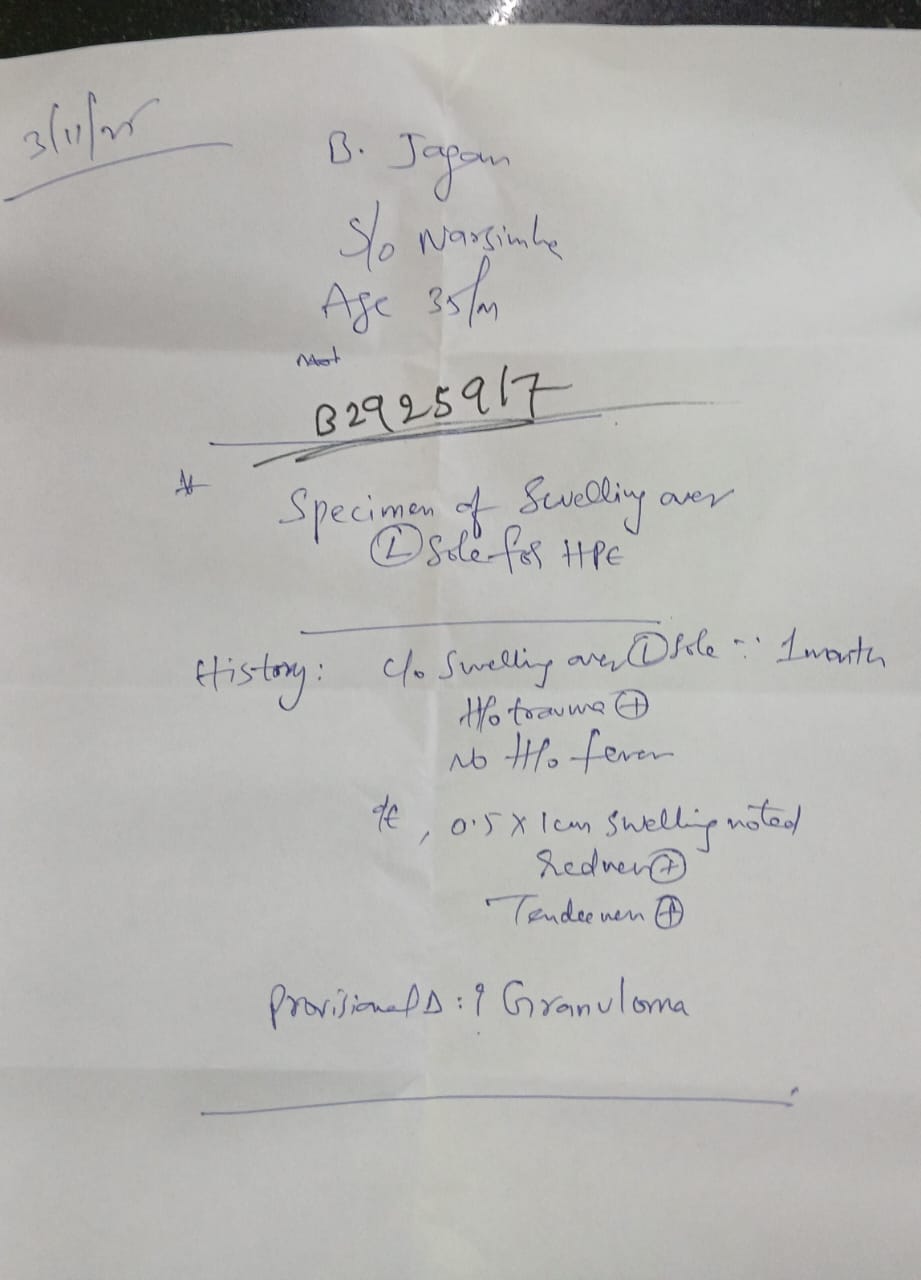 3/11/25
B. Jagan
S/o Narsimha
Age 35/M
B2925917
Specimen of Swelling over
Ⓛ Sole for HPE
History: C/o Swelling over Ⓛ Sole ∵ 1 month
H/o trauma ⊕
No H/o fever
O/E, 0.5 X 1cm Swelling noted
Redness ⊕
Tenderness ⊕
Provisional Δ : ? Granuloma